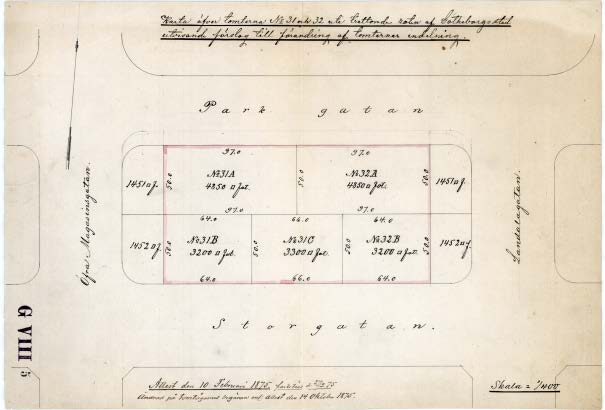 Karta öfver tomterna No 31 och 32 uti trettonde roten af Göteborgs stad
utvisande förslag till förändring af tomternas indelning.
Park gatan
97.0 97.0
No 31A No 32A
1451 □ f. 50.0 4850 □ fot. 50.0 4850 □ fot. 50.0 1451 □ f.
97.0 97.0
64.0 66.0 64.0
No 31B No 31C No 32B
1452 □ f. 50.0 3200 □ fot. 50.0 3300 □ fot. 50.0 3200 □ fot. 50.0 1452 □ f.
64.0 66.0 64.0
Öfra Magasinsgatan.
Landalagatan.
Storgatan.
G VIII 5
Attest den 10 Februari 1875,
Ändrad på tomtägarens begäran enl. attest den 14 Oktober 1875.
Skala = 1/400